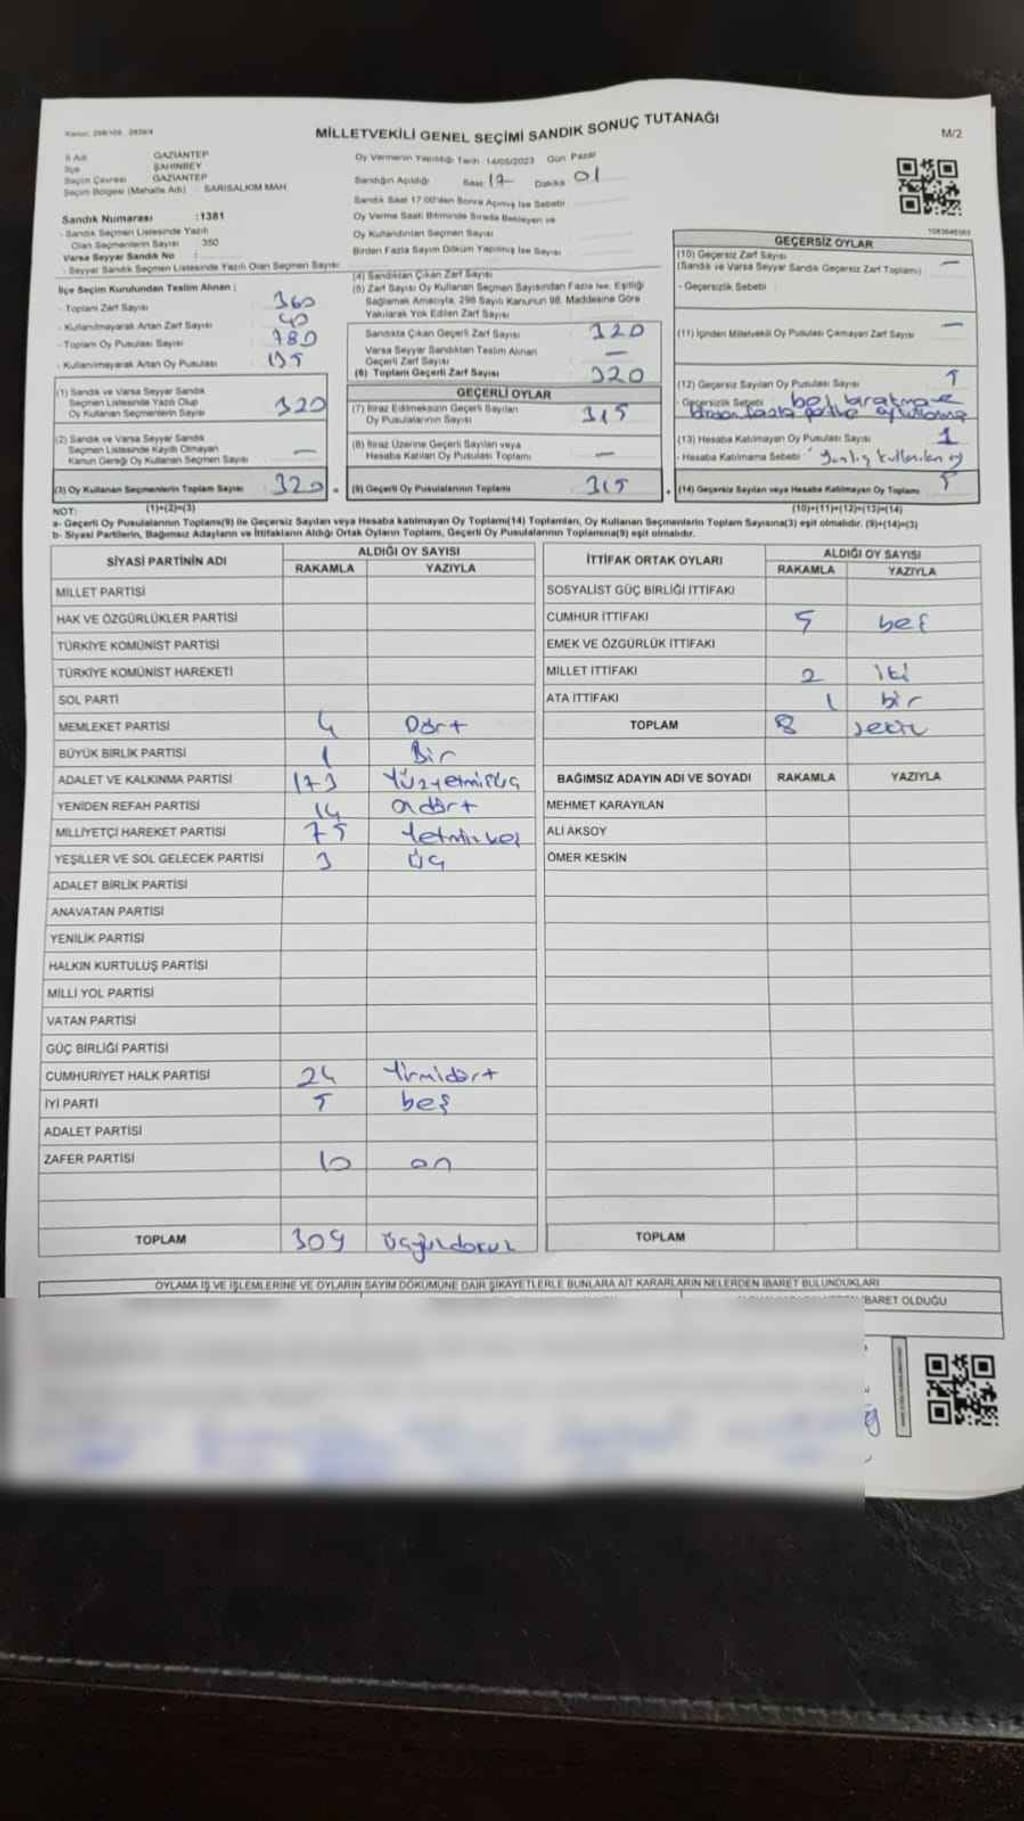 MİLLETVEKİLİ GENEL SEÇİMİ SANDIK SONUÇ TUTANAĞI
M/2
İl Adı GAZİANTEP
İlçe ŞAHİNBEY
Seçim Çevresi GAZİANTEP
Seçim Bölgesi (Mahalle Adı) SARISALKIM MAH
Sandık Numarası :1381
- Sandık Seçmen Listesinde Yazılı
Olan Seçmenlerin Sayısı 350
Varsa Seyyar Sandık No :
- Seyyar Sandık Seçmen Listesinde Yazılı Olan Seçmen Sayısı
Oy Vermenin Yapıldığı Tarih 14/05/2023 Gün Pazar
Sandığın Açıldığı Saat 17 Dakika 01
Sandık Saat 17.00'den Sonra Açılmış İse Sebebi
Oy Verme Saati Bitiminde Sırada Bekleyen ve
Oy Kullandırılan Seçmen Sayısı
Birden Fazla Sayım Döküm Yapılmış İse Sayısı
İlçe Seçim Kurulundan Teslim Alınan :
- Toplam Zarf Sayısı 360
- Kullanılmayarak Artan Zarf Sayısı 40
- Toplam Oy Pusulası Sayısı
- Kullanılmayarak Artan Oy Pusulası
(1) Sandık ve Varsa Seyyar Sandık
Seçmen Listesinde Yazılı Olup
Oy Kullanan Seçmenlerin Sayısı 320
(2) Sandık ve Varsa Seyyar Sandık
Seçmen Listesinde Kayıtlı Olmayan
Kanun Gereği Oy Kullanan Seçmen Sayısı —
(3) Oy Kullanan Seçmenlerin Toplam Sayısı 320
(1)+(2)=(3)
(4) Sandıktan Çıkan Zarf Sayısı
(5) Zarf Sayısı Oy Kullanan Seçmen Sayısından Fazla İse, Eşitliği
Sağlamak Amacıyla, 298 Sayılı Kanunun 98. Maddesine Göre
Yakılarak Yok Edilen Zarf Sayısı
Sandıkta Çıkan Geçerli Zarf Sayısı 320
Varsa Seyyar Sandıktan Teslim Alınan
Geçerli Zarf Sayısı —
(6) Toplam Geçerli Zarf Sayısı 320
GEÇERLİ OYLAR
(7) İtiraz Edilmeksizin Geçerli Sayılan
Oy Pusulalarının Sayısı 315
(8) İtiraz Üzerine Geçerli Sayılan veya
Hesaba Katılan Oy Pusulası Toplamı —
(9) Geçerli Oy Pusulalarının Toplamı 315
GEÇERSİZ OYLAR
(10) Geçersiz Zarf Sayısı
(Sandık ve Varsa Seyyar Sandık Geçersiz Zarf Toplamı) —
- Geçersizlik Sebebi
(11) İçinden Milletvekili Oy Pusulası Çıkmayan Zarf Sayısı —
(12) Geçersiz Sayılan Oy Pusulası Sayısı
- Geçersizlik Sebebi
(13) Hesaba Katılmayan Oy Pusulası Sayısı 1
- Hesaba Katılmama Sebebi
(14) Geçersiz Sayılan veya Hesaba Katılmayan Oy Toplamı 5
(10)+(11)+(12)+(13)=(14)
NOT:
a- Geçerli Oy Pusulalarının Toplamı(9) ile Geçersiz Sayılan veya Hesaba katılmayan Oy Toplamı(14) Toplamları, Oy Kullanan Seçmenlerin Toplam Sayısına(3) eşit olmalıdır. (9)+(14)=(3)
b- Siyasi Partilerin, Bağımsız Adayların ve İttifakların Aldığı Ortak Oyların Toplamı, Geçerli Oy Pusulalarının Toplamına(9) eşit olmalıdır.
SİYASİ PARTİNİN ADI ALDIĞI OY SAYISI
RAKAMLA YAZIYLA
MİLLET PARTİSİ
HAK VE ÖZGÜRLÜKLER PARTİSİ
TÜRKİYE KOMÜNİST PARTİSİ
TÜRKİYE KOMÜNİST HAREKETİ
SOL PARTİ
MEMLEKET PARTİSİ 4 Dört
BÜYÜK BİRLİK PARTİSİ 1 Bir
ADALET VE KALKINMA PARTİSİ 173 Yüzyetmişüç
YENİDEN REFAH PARTİSİ 14 ondört
MİLLİYETÇİ HAREKET PARTİSİ 75 Yetmişbeş
YEŞİLLER VE SOL GELECEK PARTİSİ 3 üç
ADALET BİRLİK PARTİSİ
ANAVATAN PARTİSİ
YENİLİK PARTİSİ
HALKIN KURTULUŞ PARTİSİ
MİLLİ YOL PARTİSİ
VATAN PARTİSİ
GÜÇ BİRLİĞİ PARTİSİ
CUMHURİYET HALK PARTİSİ 24 Yirmidört
İYİ PARTİ 5 beş
ADALET PARTİSİ
ZAFER PARTİSİ 10 on
TOPLAM 309 üçyüzdokuz
İTTİFAK ORTAK OYLARI ALDIĞI OY SAYISI
RAKAMLA YAZIYLA
SOSYALİST GÜÇ BİRLİĞİ İTTİFAKI
CUMHUR İTTİFAKI 5 beş
EMEK VE ÖZGÜRLÜK İTTİFAKI
MİLLET İTTİFAKI 2 iki
ATA İTTİFAKI 1 bir
TOPLAM 8 sekiz
BAĞIMSIZ ADAYIN ADI VE SOYADI RAKAMLA YAZIYLA
MEHMET KARAYILAN
ALİ AKSOY
ÖMER KESKİN
TOPLAM
OYLAMA İŞ VE İŞLEMLERİNE VE OYLARIN SAYIM DÖKÜMÜNE DAİR ŞİKAYETLERLE BUNLARA AİT KARARLARIN NELERDEN İBARET BULUNDUKLARI
BARET OLDUĞU